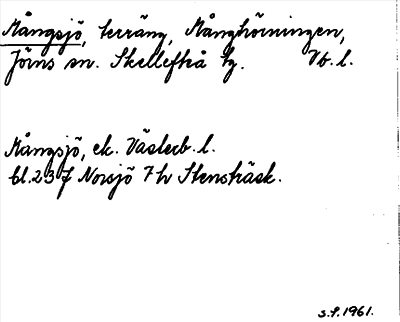 Mångsjö, terräng, Månghörningen,
Jörns sn. Skellefteå tg. Vb. l.
Mångsjö, ek. Västerb. l.
bl. 23 f Norsjö 7 h Stensträsk.
s.f. 1961.